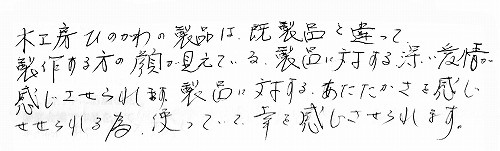 木工房ひのかわの製品は、既製品と違って、
製作する方の顔が見えている、製品に対する深い愛情が
感じさせられます。製品に対する、あたたかさを感じ
させられる為、使っていて、幸を感じさせられます。